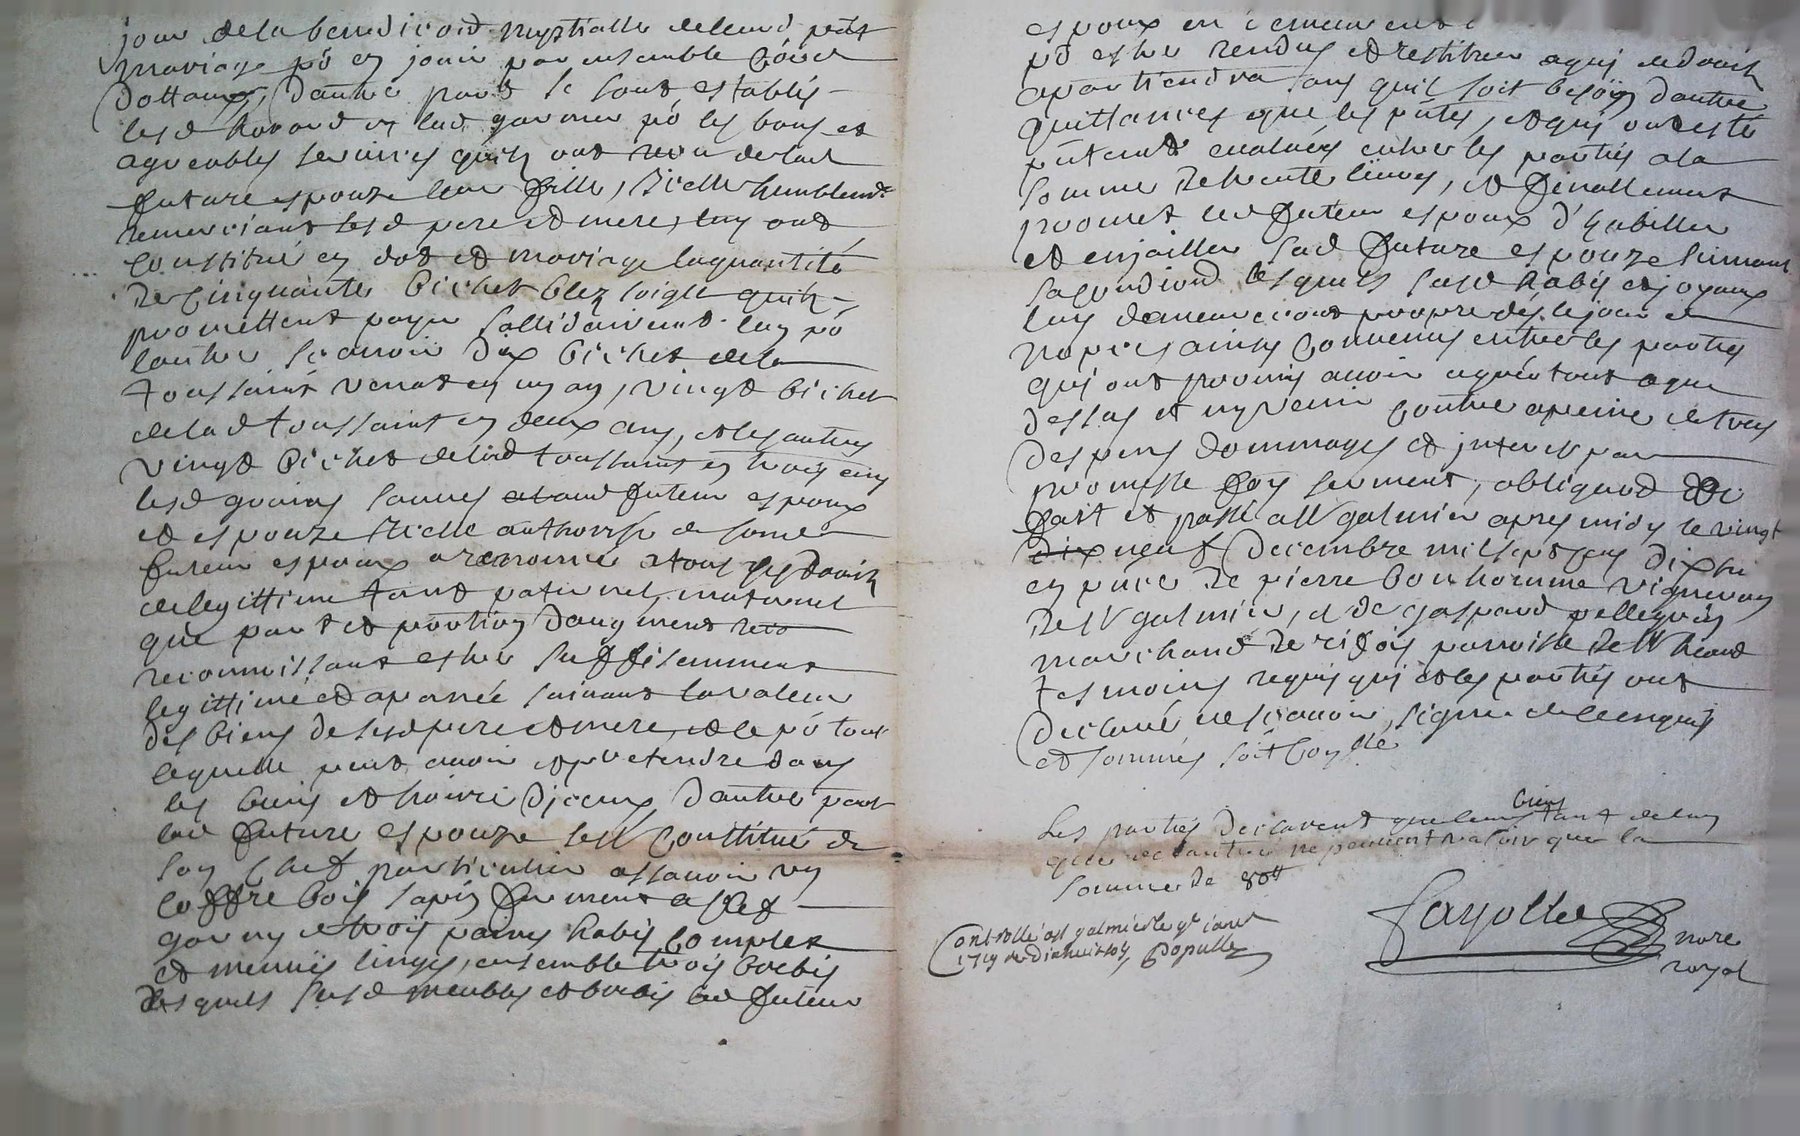 jour de la benediction nuptialle de leurd pnt
mariage po en jouir par ensemble
dottaux, d'autre part se sont establis
lesd havard et lad garnier po les bons et
agreables services quilz ont receu de lad
future espouze leur fille, icelle humblemt
remerciant lesd pere et mere, luy ont
constitué en dot et mariage la quantité
de cinquante bichet bled soigle quilz
promettent payer sollidairement l'un po
l'autre scavoir dix bichet de la
toussaint venant en un an, vingt bichet
de lad toussaint en deux ans, et les autres
vingt bichet de lad toussaint en trois ans
lesd grains
et espouze icelle authorisée de sond
futeur espoux a renoncé a tous ses droitz
de legittime tant paternel, maternel
que part et portion d'augment
reconnissant estre suffisemment
legittimé et apanée suivant la valeur
des biens de sesd pere et mere, et le po tout
laquelle peut avoir et pretendre dans
les biens et hoirie d'iceux, d'autre part
lad future espouze sest constitué de
son chef particulier assavoir un
coffre bois sapin fermant a clef
garny de trois paires habis complet
et menuës linges, ensemble trois brebis
desquels susd meubles et brebis led futeur
espoux en demeurera
po estre rendus et restitués a qui de droit
apartiendra sans quil soit besoin dautre
quittances que les pntes, et qui ont esté
pntemt evalués entre les parties a la
somme de trente livres, et finallement
promet led futeur espoux d'habiller
et enjailler sad future espouze suivant
sa condiond lesquels susd habis et joyaux
luy demeureront propre dés le jour de
nopces ainsy convenus entre les parties
qui ont promis avoir agréé tout a que
dessus et ny venir contre a peine de tous
despens dommages et interest par
promesse foy serment, obligeand &c
fait et passé a St galmier apres midy le vingt
neuf decembre mil sept cens dix huit
en pnce de pierre bonhomme vigneron
de St galmier, et de gaspard pellegrin
marchand de parroisse de St heand
tesmoins requis qui et les parties ont
declaré ne scavoir signer de ce enquis
et sommés soit
Les parties declarent que leurs biens tant de luy
que de l'autre ne peuvent valoir que la
somme de 80tt
Controllé a St galmier le 9e janv
1719 Populle
Fayolle
nore
royal